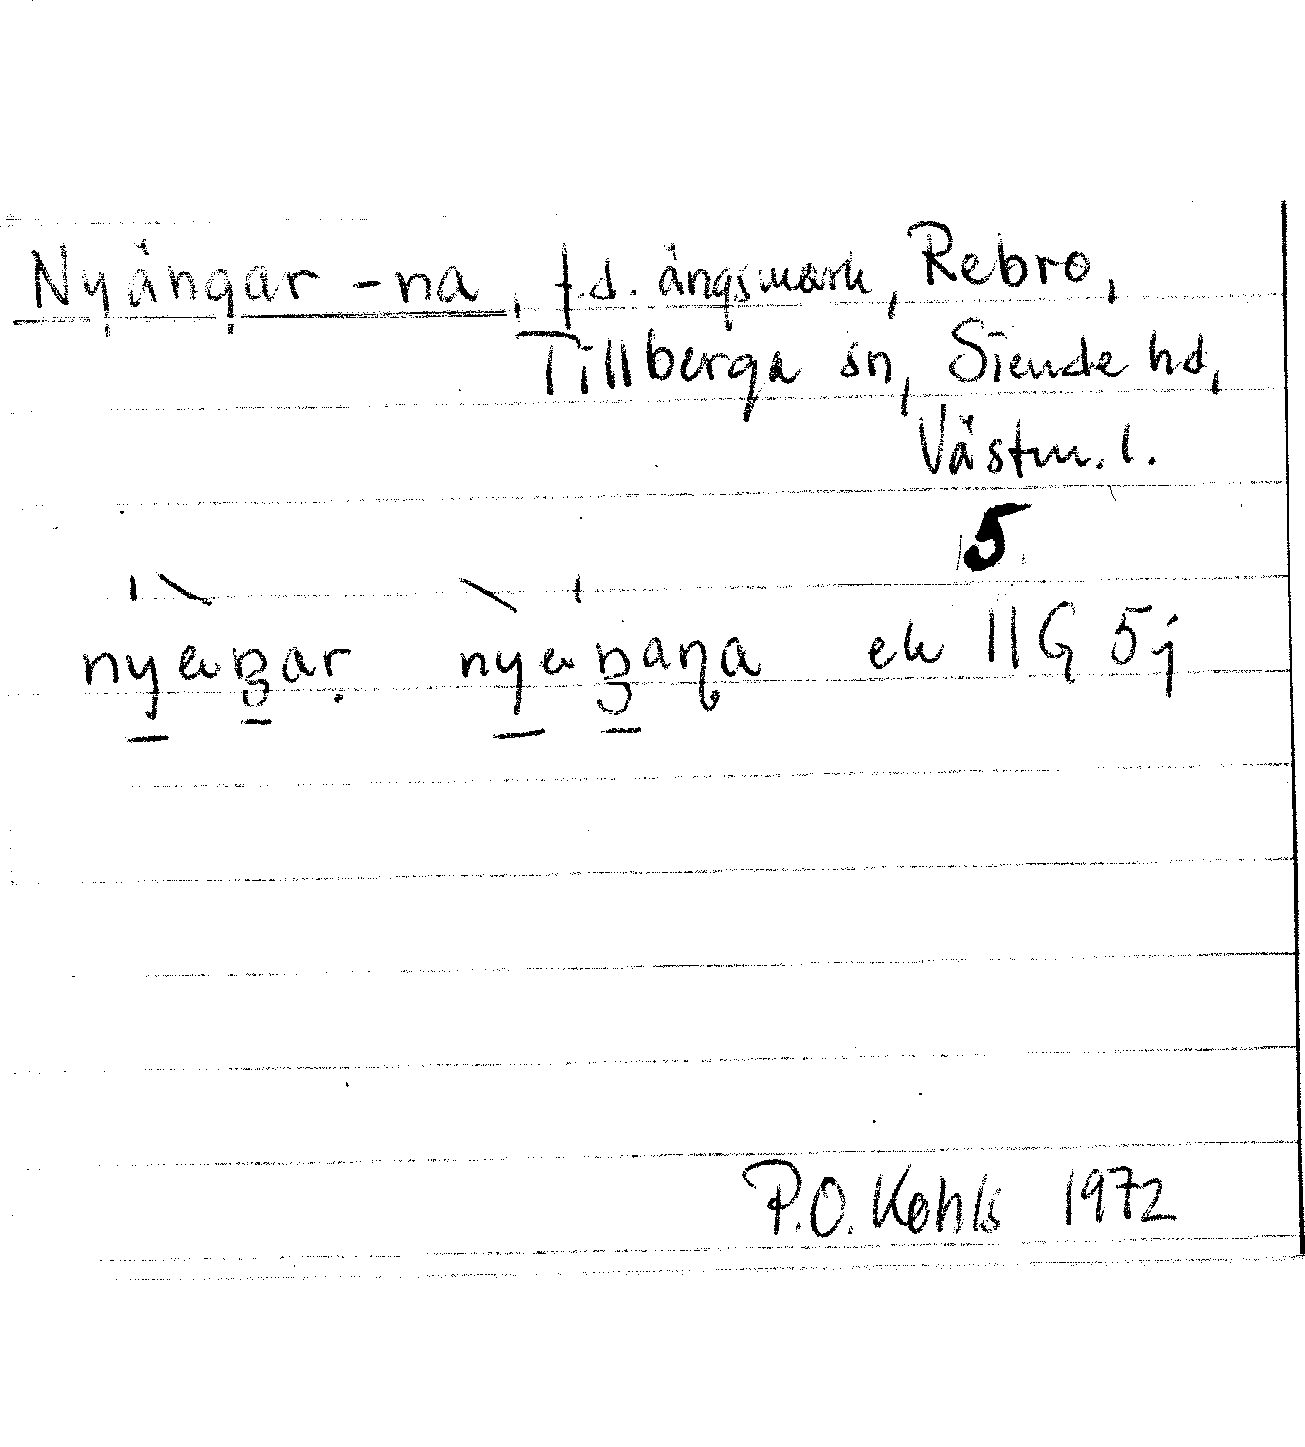 Nyängar -na, f.d. ängsmark, Rebro,
Tillberga sn, Siende hd,
Västm. l.
5
ek 11G 5j
P.O. Kohls 1972